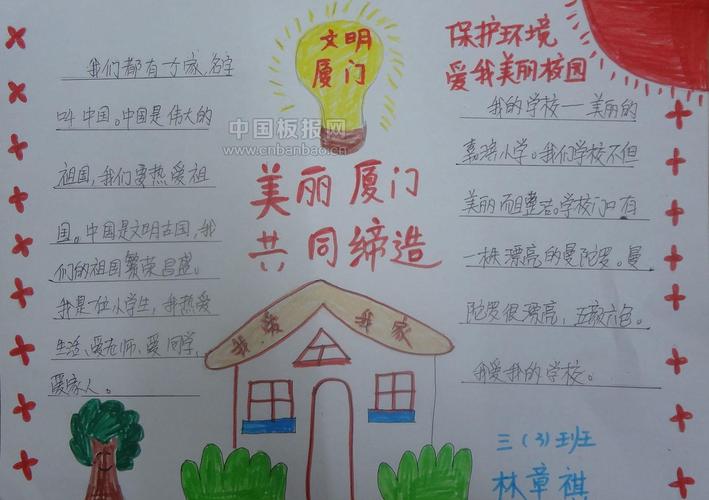 文明
厦门
保护环境
爱我美丽校园
我们都有个家,名字
叫中国。中国是伟大的
祖国,我们要热爱祖
国。中国是文明古国,我
们的祖国繁荣昌盛。
我是一位小学生,我热爱
生活、爱老师、爱同学,
爱家人。
中国板报网
www.cnbanbao.cn
美丽厦门
共同缔造
我爱我家
我的学校—美丽的
小学。我们学校不但
美丽而且整洁。学校门口有
一株漂亮的曼陀罗。曼
陀罗很漂亮,五颜六色。
我爱我的学校。
三(3)班
林童祺